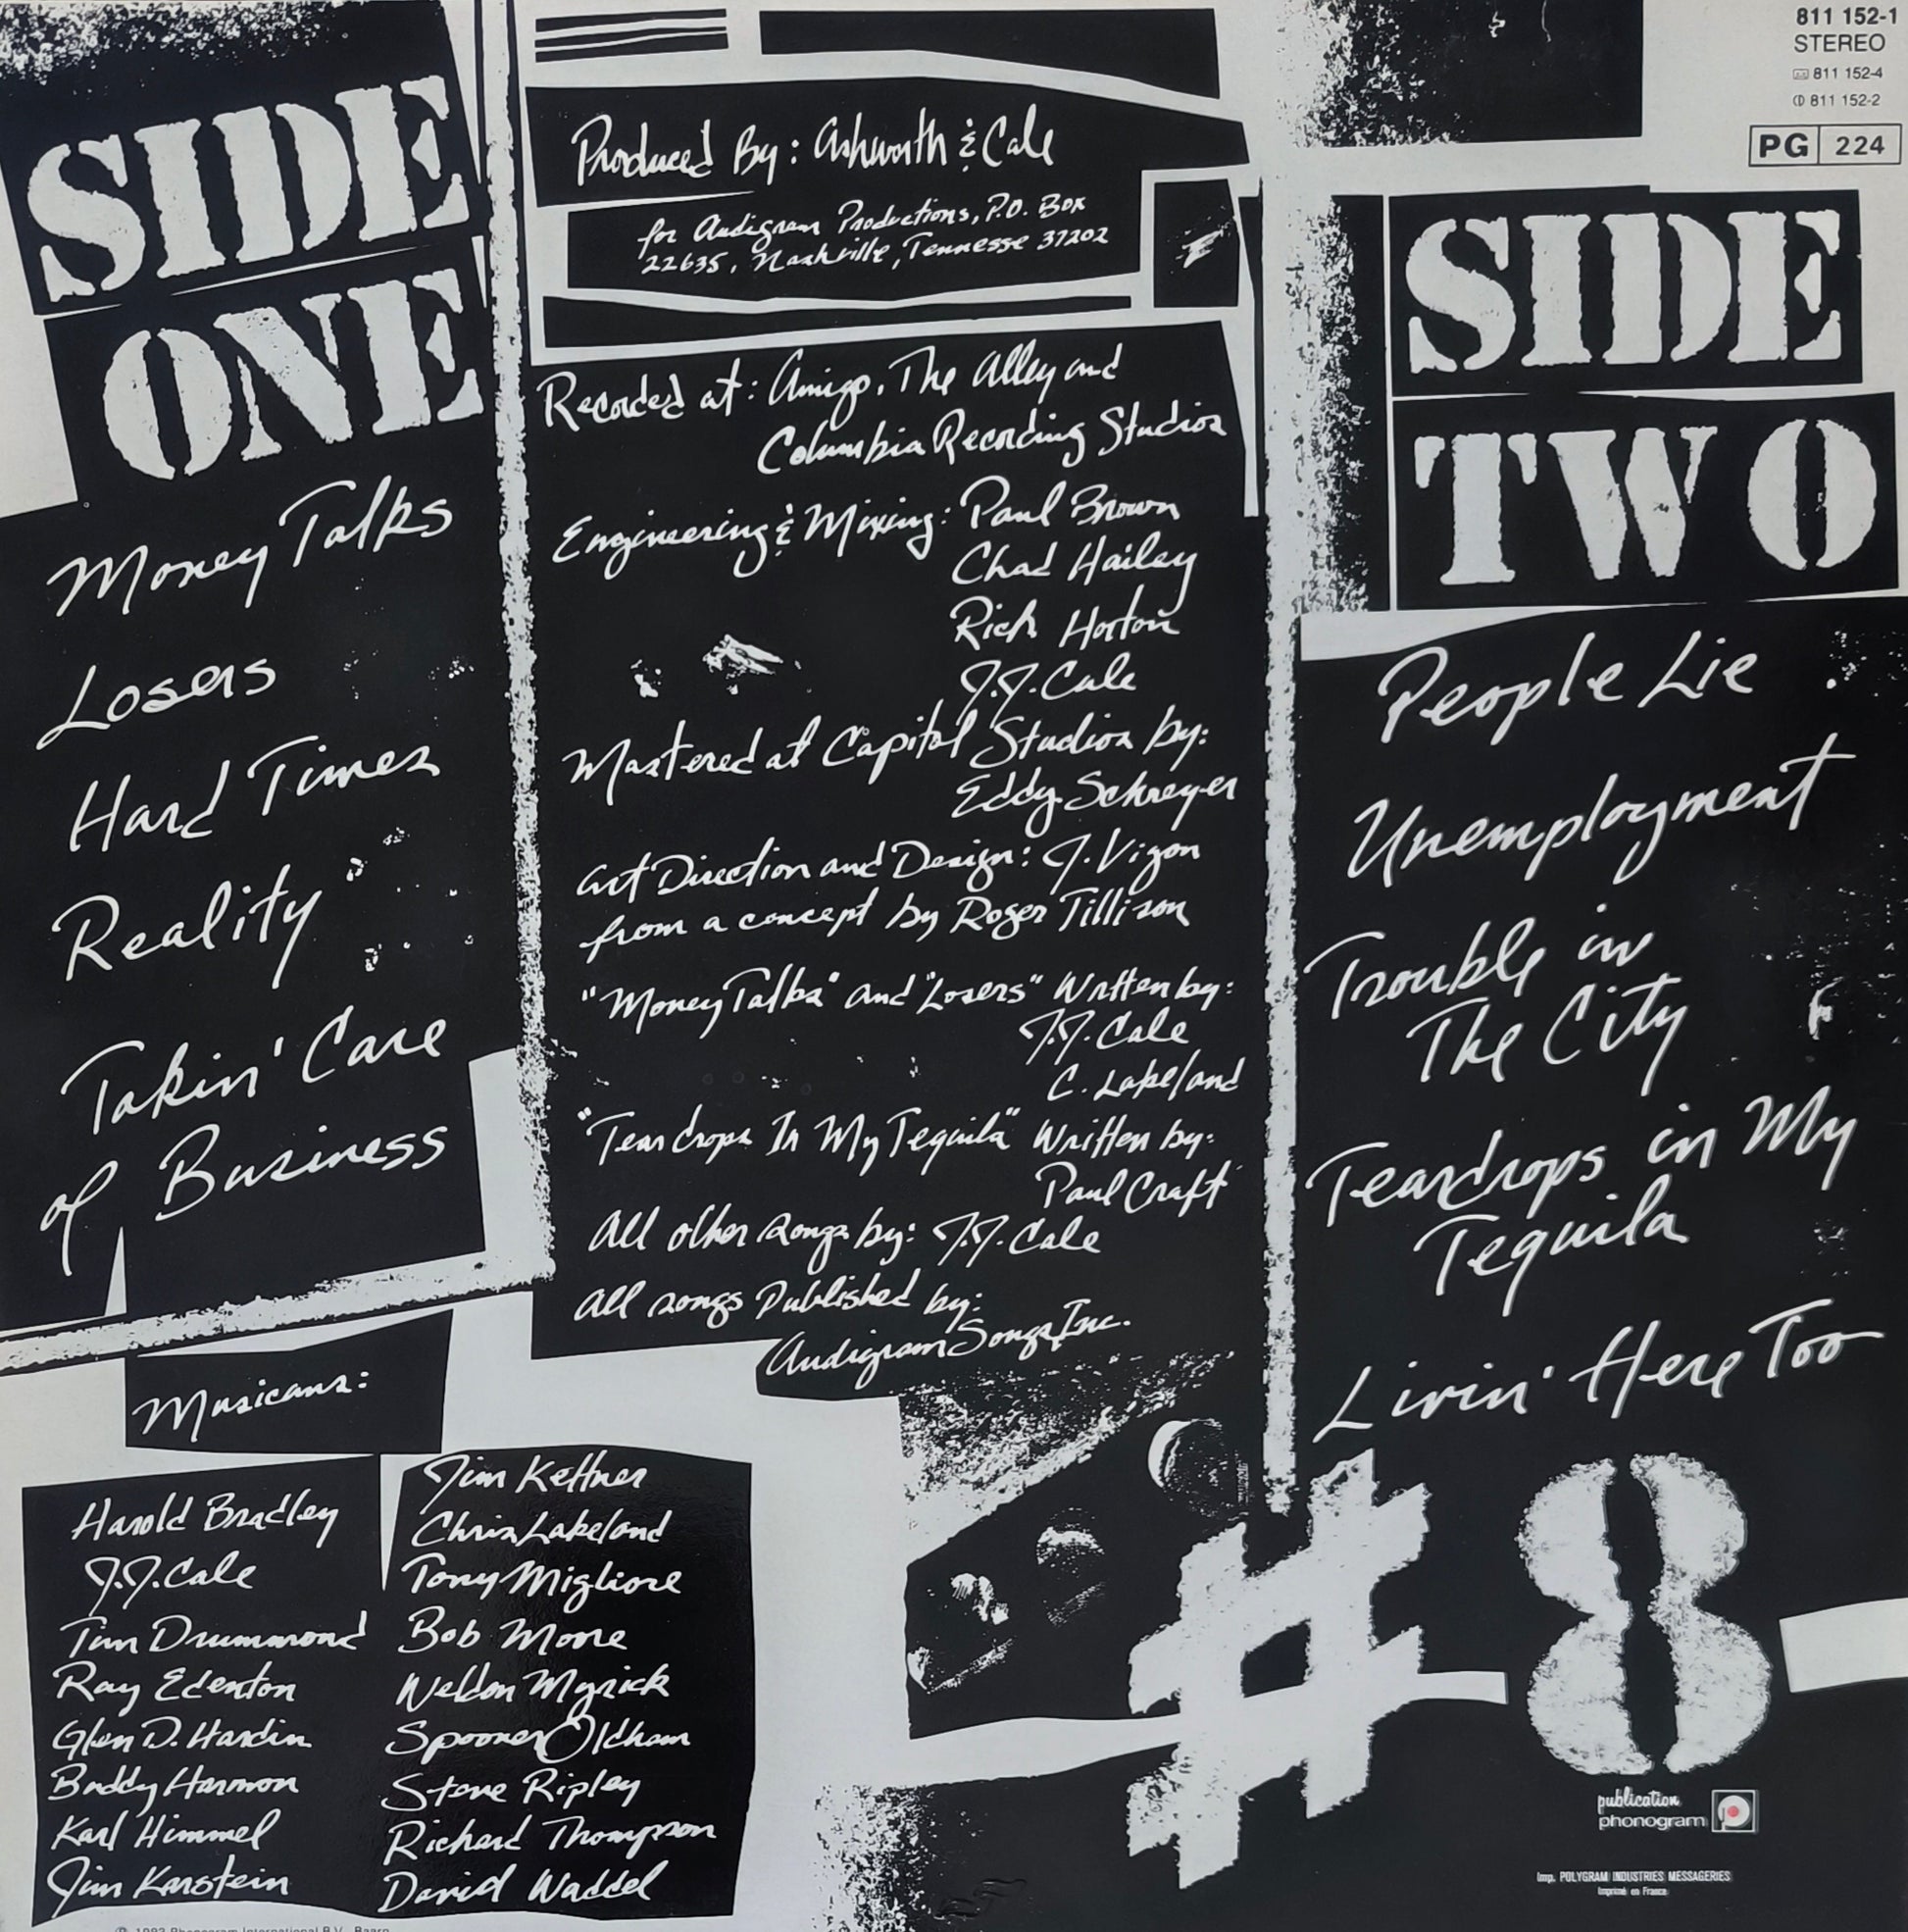 SIDE
ONE
Money Talks
Losers
Hard Times
Reality
Takin' Care
of Business
Produced By: Ashworth & Cale
for Audigram Productions, P.O. Box
22635, Nashville, Tennesse 37202
Recorded at: Amigo, The Alley and
Columbia Recording Studios
Engineering & Mixing: Paul Brown
Chad Hailey
Rich Horton
J.J. Cale
Mastered at Capitol Studios by:
Eddy Schreyer
Art Direction and Design: J. Vigon
from a concept by Roger Tillison
"Money Talks" and "Losers" Written by:
J.J. Cale
C. Lakeland
"Teardrops In My Tequila" Written by:
Paul Craft
All other songs by: J.J. Cale
All songs Published by:
Audigram Songs, Inc.
811 152-1
STEREO
811 152-4
CD 811 152-2
PG 224
SIDE
TWO
People Lie
Unemployment
Trouble in
The City
Teardrops in My
Tequila
Livin' Here Too
Musicans:
Harold Bradley
J.J. Cale
Tim Drummond
Ray Edenton
Glen D. Hardin
Buddy Harmon
Karl Himmel
Jim Karstein
Jim Keltner
Chris Lakeland
Tony Migliore
Bob Moore
Weldon Myrick
Spooner Oldham
Steve Ripley
Richard Thompson
David Waddel
#8
publication
phonogram
Imp. POLYGRAM INDUSTRIES MESSAGERIES
Imprimé en France